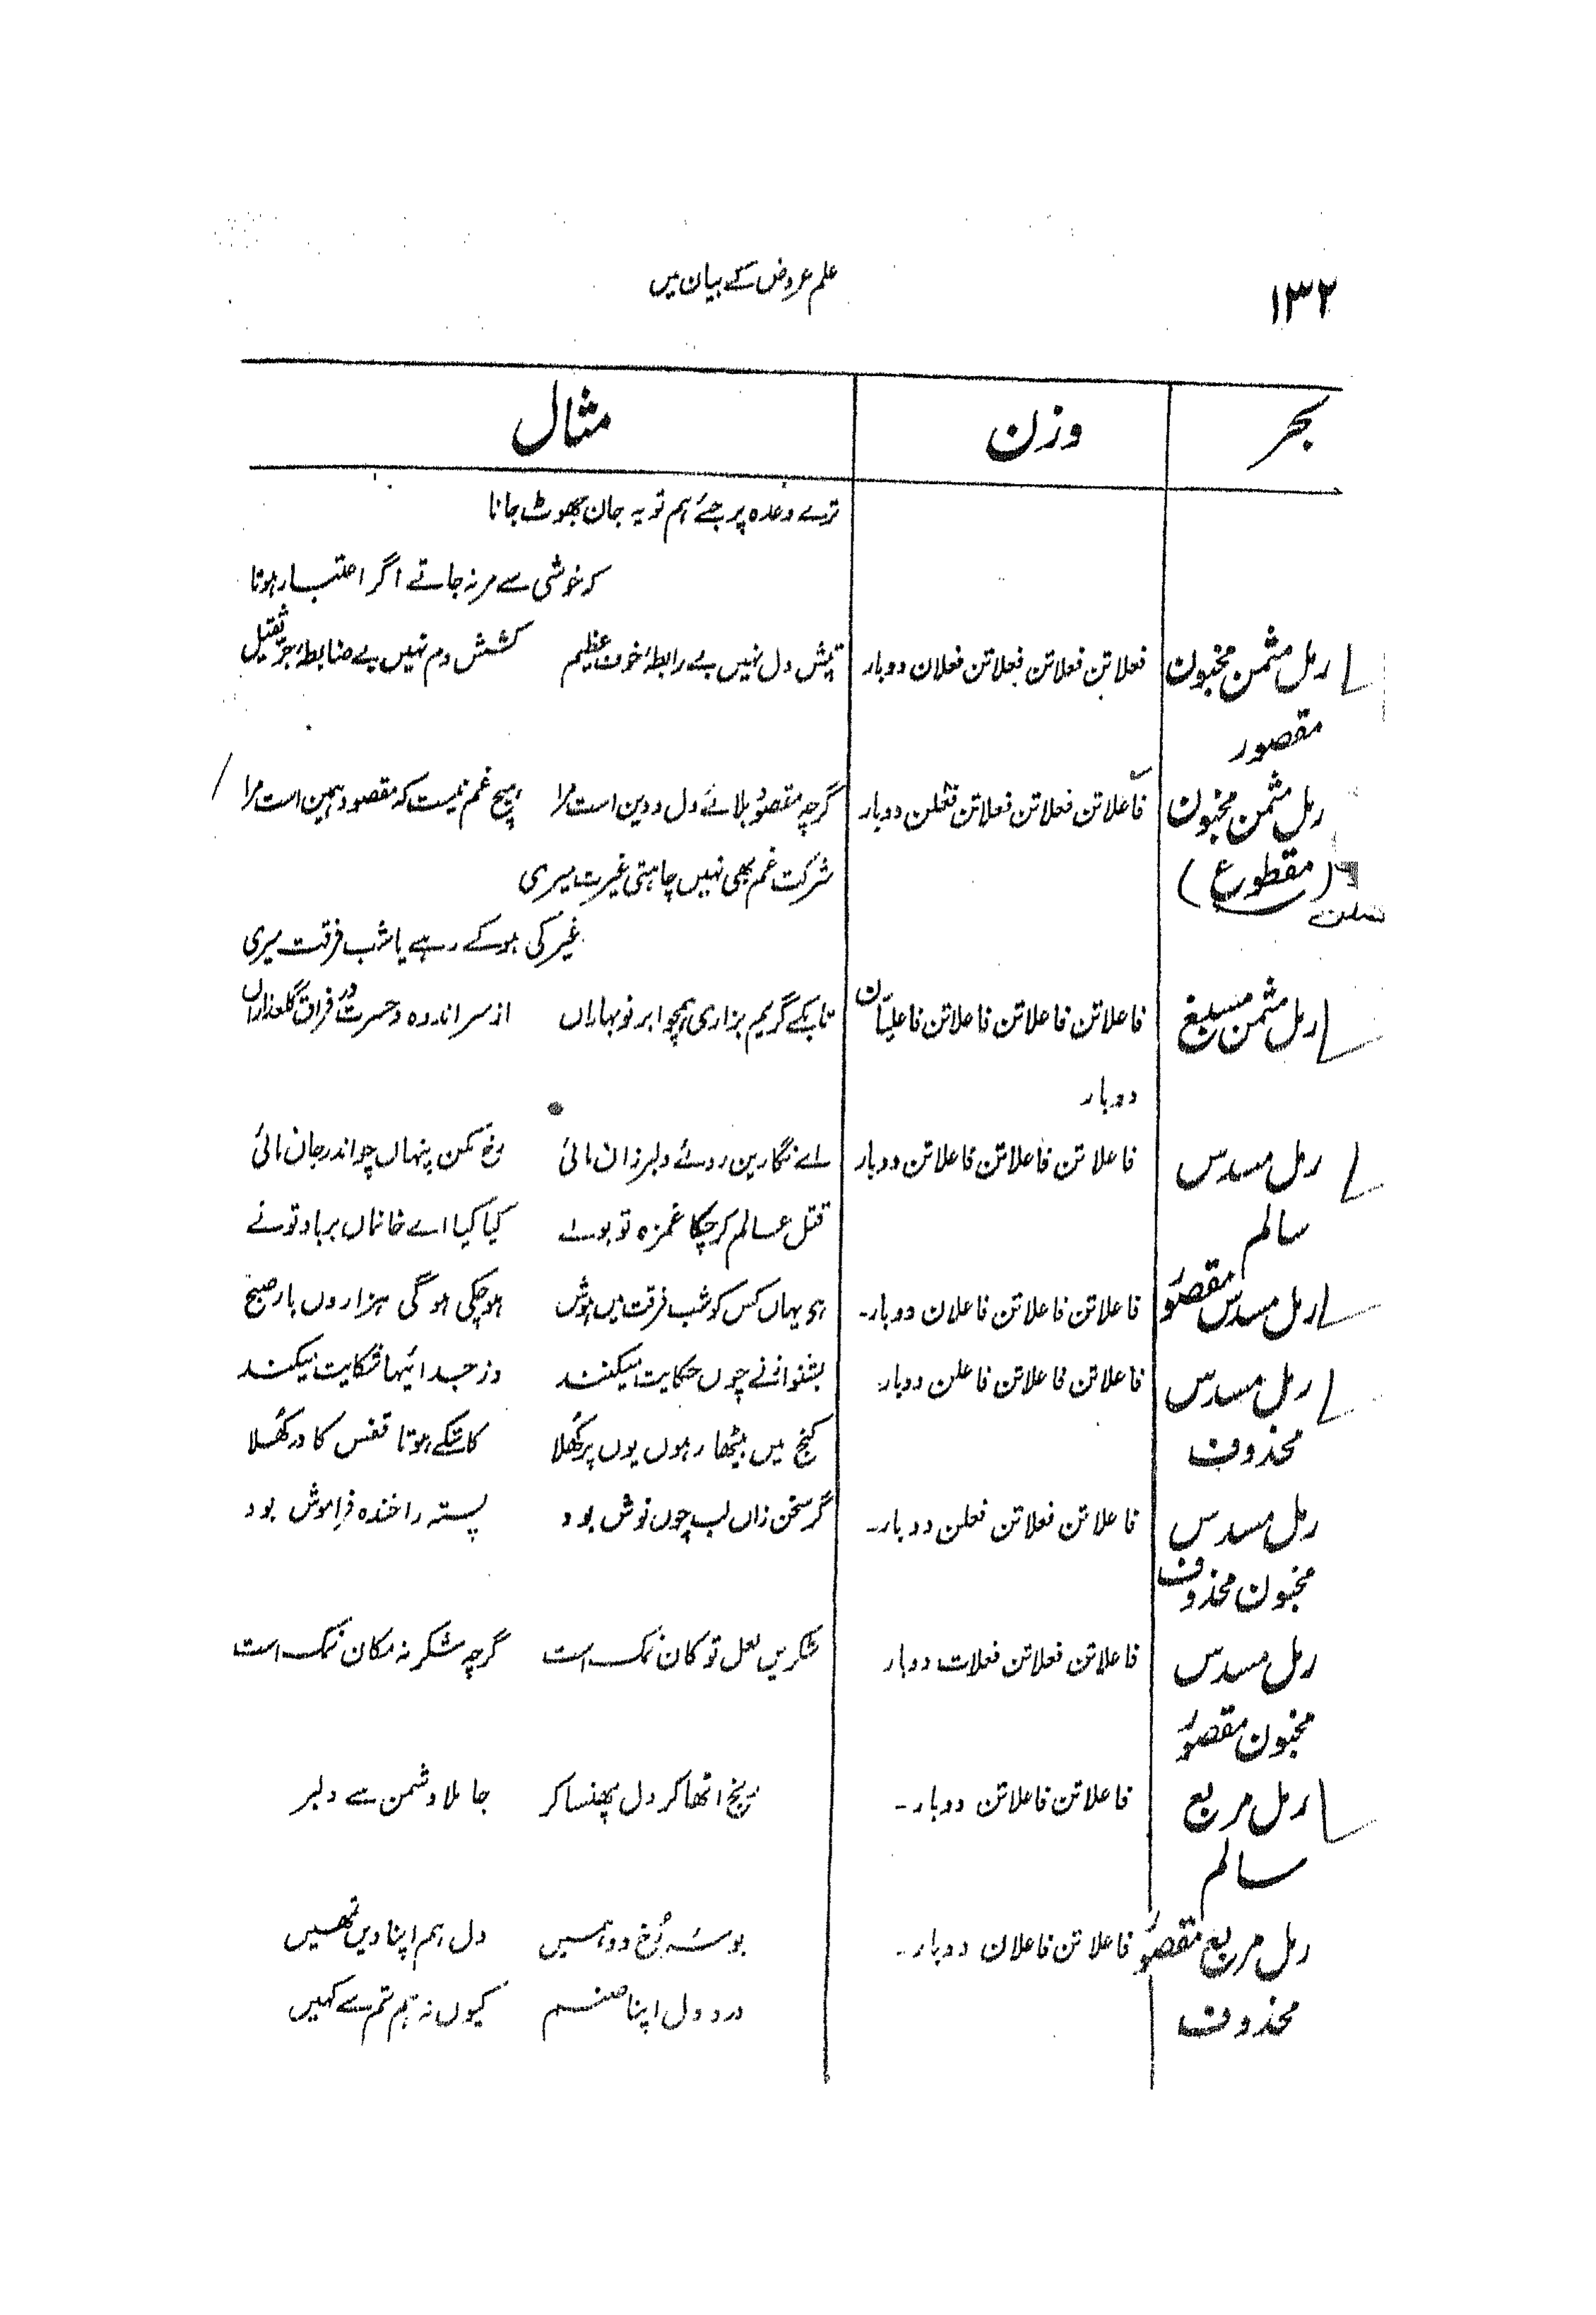 ۱۳۲
علم عروض کے بیان میں
بحر وزن مثال
ترے وعدہ پر جئے ہم تو یہ جان جھوٹ جانا
کہ خوشی سے مر نہ جاتے اگر اعتبار ہوتا
رمل مثمن مخبون فعلاتن فعلاتن فعلاتن فعلان دوبار تپش دل نہیں بے رابطۂ خون عظیم کشش دم نہیں بے ضابطۂ جر ثقیل
مقصور
رمل مثمن مخبون فاعلاتن فعلاتن فعلاتن فعلن دوبار گرچہ مقصود بلائے دل و دین است مرا ہیچ غم نیست کہ مقصود ہمین است مرا
(مقطوع) شرکت غم بھی نہیں چاہتی غیرت میری
غیر کی ہو کے رہے یا شب فرقت میری
رمل مثمن مسبغ فاعلاتن فاعلاتن فاعلاتن فاعلیان تابکے گریم بزاری ہمچو ابر نوبہاراں از سر اندوہ و حسرت در فراق گلعذاراں
دوبار
رمل مسدس فاعلاتن فاعلاتن فاعلاتن دوبار اے نگارین روئے دلبر زان مائی رخ مکن پنہاں چو اندر جان مائی
سالم قتل عالم کر چکا غمزہ تو بولے کیا کیا اے خانماں برباد تونے
رمل مسدس مقصور فاعلاتن فاعلاتن فاعلان دوبار۔ ہو یہاں کس کو شب فرقت میں ہوش ہو چکی ہوگی ہزاروں بار صبح
رمل مسدس فاعلاتن فاعلاتن فاعلن دوبار بشنو از نے چوں حکایت میکند وز جدائیہا شکایت میکند
محذوف کنج میں بیٹھا رہوں یوں پر کُھلا کاشکے ہوتا قفس کا در کُھلا
رمل مسدس فاعلاتن فعلاتن فعلن دوبار۔ گر سخن زاں لب چوں نوش بود پستہ را خندہ فراموش بود
مخبون محذوف
رمل مسدس فاعلاتن فعلاتن فعلات دوبار شکریں لعل تو کان نمک است گرچہ شکر نہ مکان نمک است
مخبون مقصور
رمل مربع فاعلاتن فاعلاتن دوبار۔ رنج اٹھا کر دل پھنسا کر جا ملا دشمن سے دلبر
سالم
رمل مربع مقصور فاعلاتن فاعلان دوبار۔ بوسۂ رُخ دو ہمیں دل ہم اپنا دیں تمھیں
محذوف درد دل اپنا صنم کیوں نہ ہم تم سے کہیں